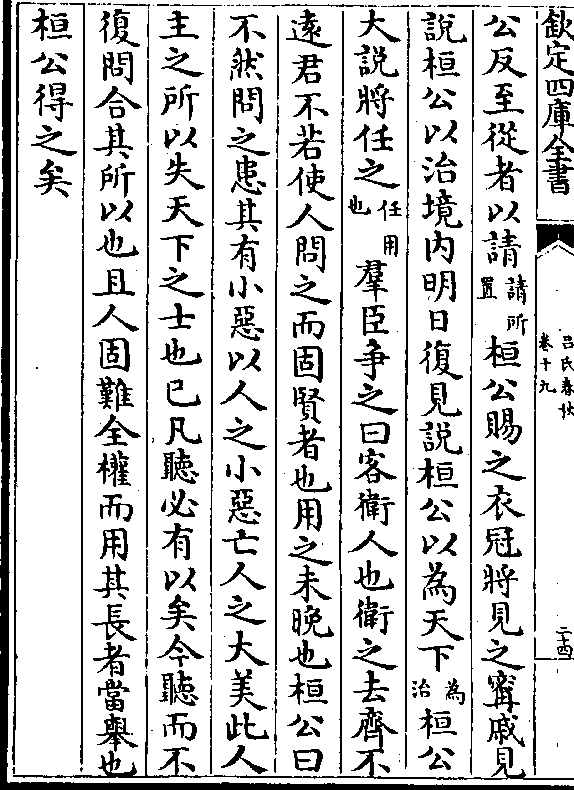 欽定四庫全書
吕氏春秋
卷十九
二十四
公反至從者以請請所置桓公賜之衣冠將見之甯戚見
說桓公以治境内明日復見說桓公以為天下為治桓公
大說將任之任用也羣臣爭之曰客衛人也衛之去齊不
遠君不若使人問之而固賢者也用之未晚也桓公曰
不然問之患其有小惡以人之小惡亡人之大美此人
主之所以失天下之士也已凡聽必有以矣今聽而不
復問合其所以也且人固難全權而用其長者當舉也
桓公得之矣